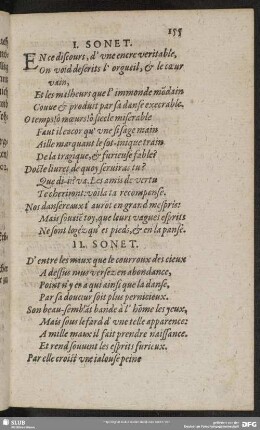 155
I. SONET.
EN ce discours, d'vne encre veritable,
On void descrits l'orgueil, & le cœur
vain,
Et les malheurs que l'immonde mõdain
Couue & produit par sa danse execrable.
O temps! ô mœurs! ô siecle miserable
Faut il encor qu'vne si sage main
Aille marquant le sot-inique train
De la tragique, & furieuse fable?
Docte liuret de quoy seruiras tu?
Que di-ie? va. Les amis de vertu
Te cheriront: voila ta recompense.
Nos dansereaux t'auront en grand mespris:
Mais souuiē toy, que leurs vagues esprits
Ne sont logez qu'és pieds, & en la panse.
II. SONET.
D'entre les maux que le courroux des cieux
A dessus nous versez en abondance,
Point n'y en a qui ainsi que la danse,
Par sa douceur soit plus pernicieux.
Son beau-semblāt bande à l'hôme les yeux,
Mais sous le fard d'vne telle apparence:
A mille maux il fait prendre naissance:
Et rend souuent les esprits furieux.
Par elle croist vne ialouse peine
SLUB
DFG